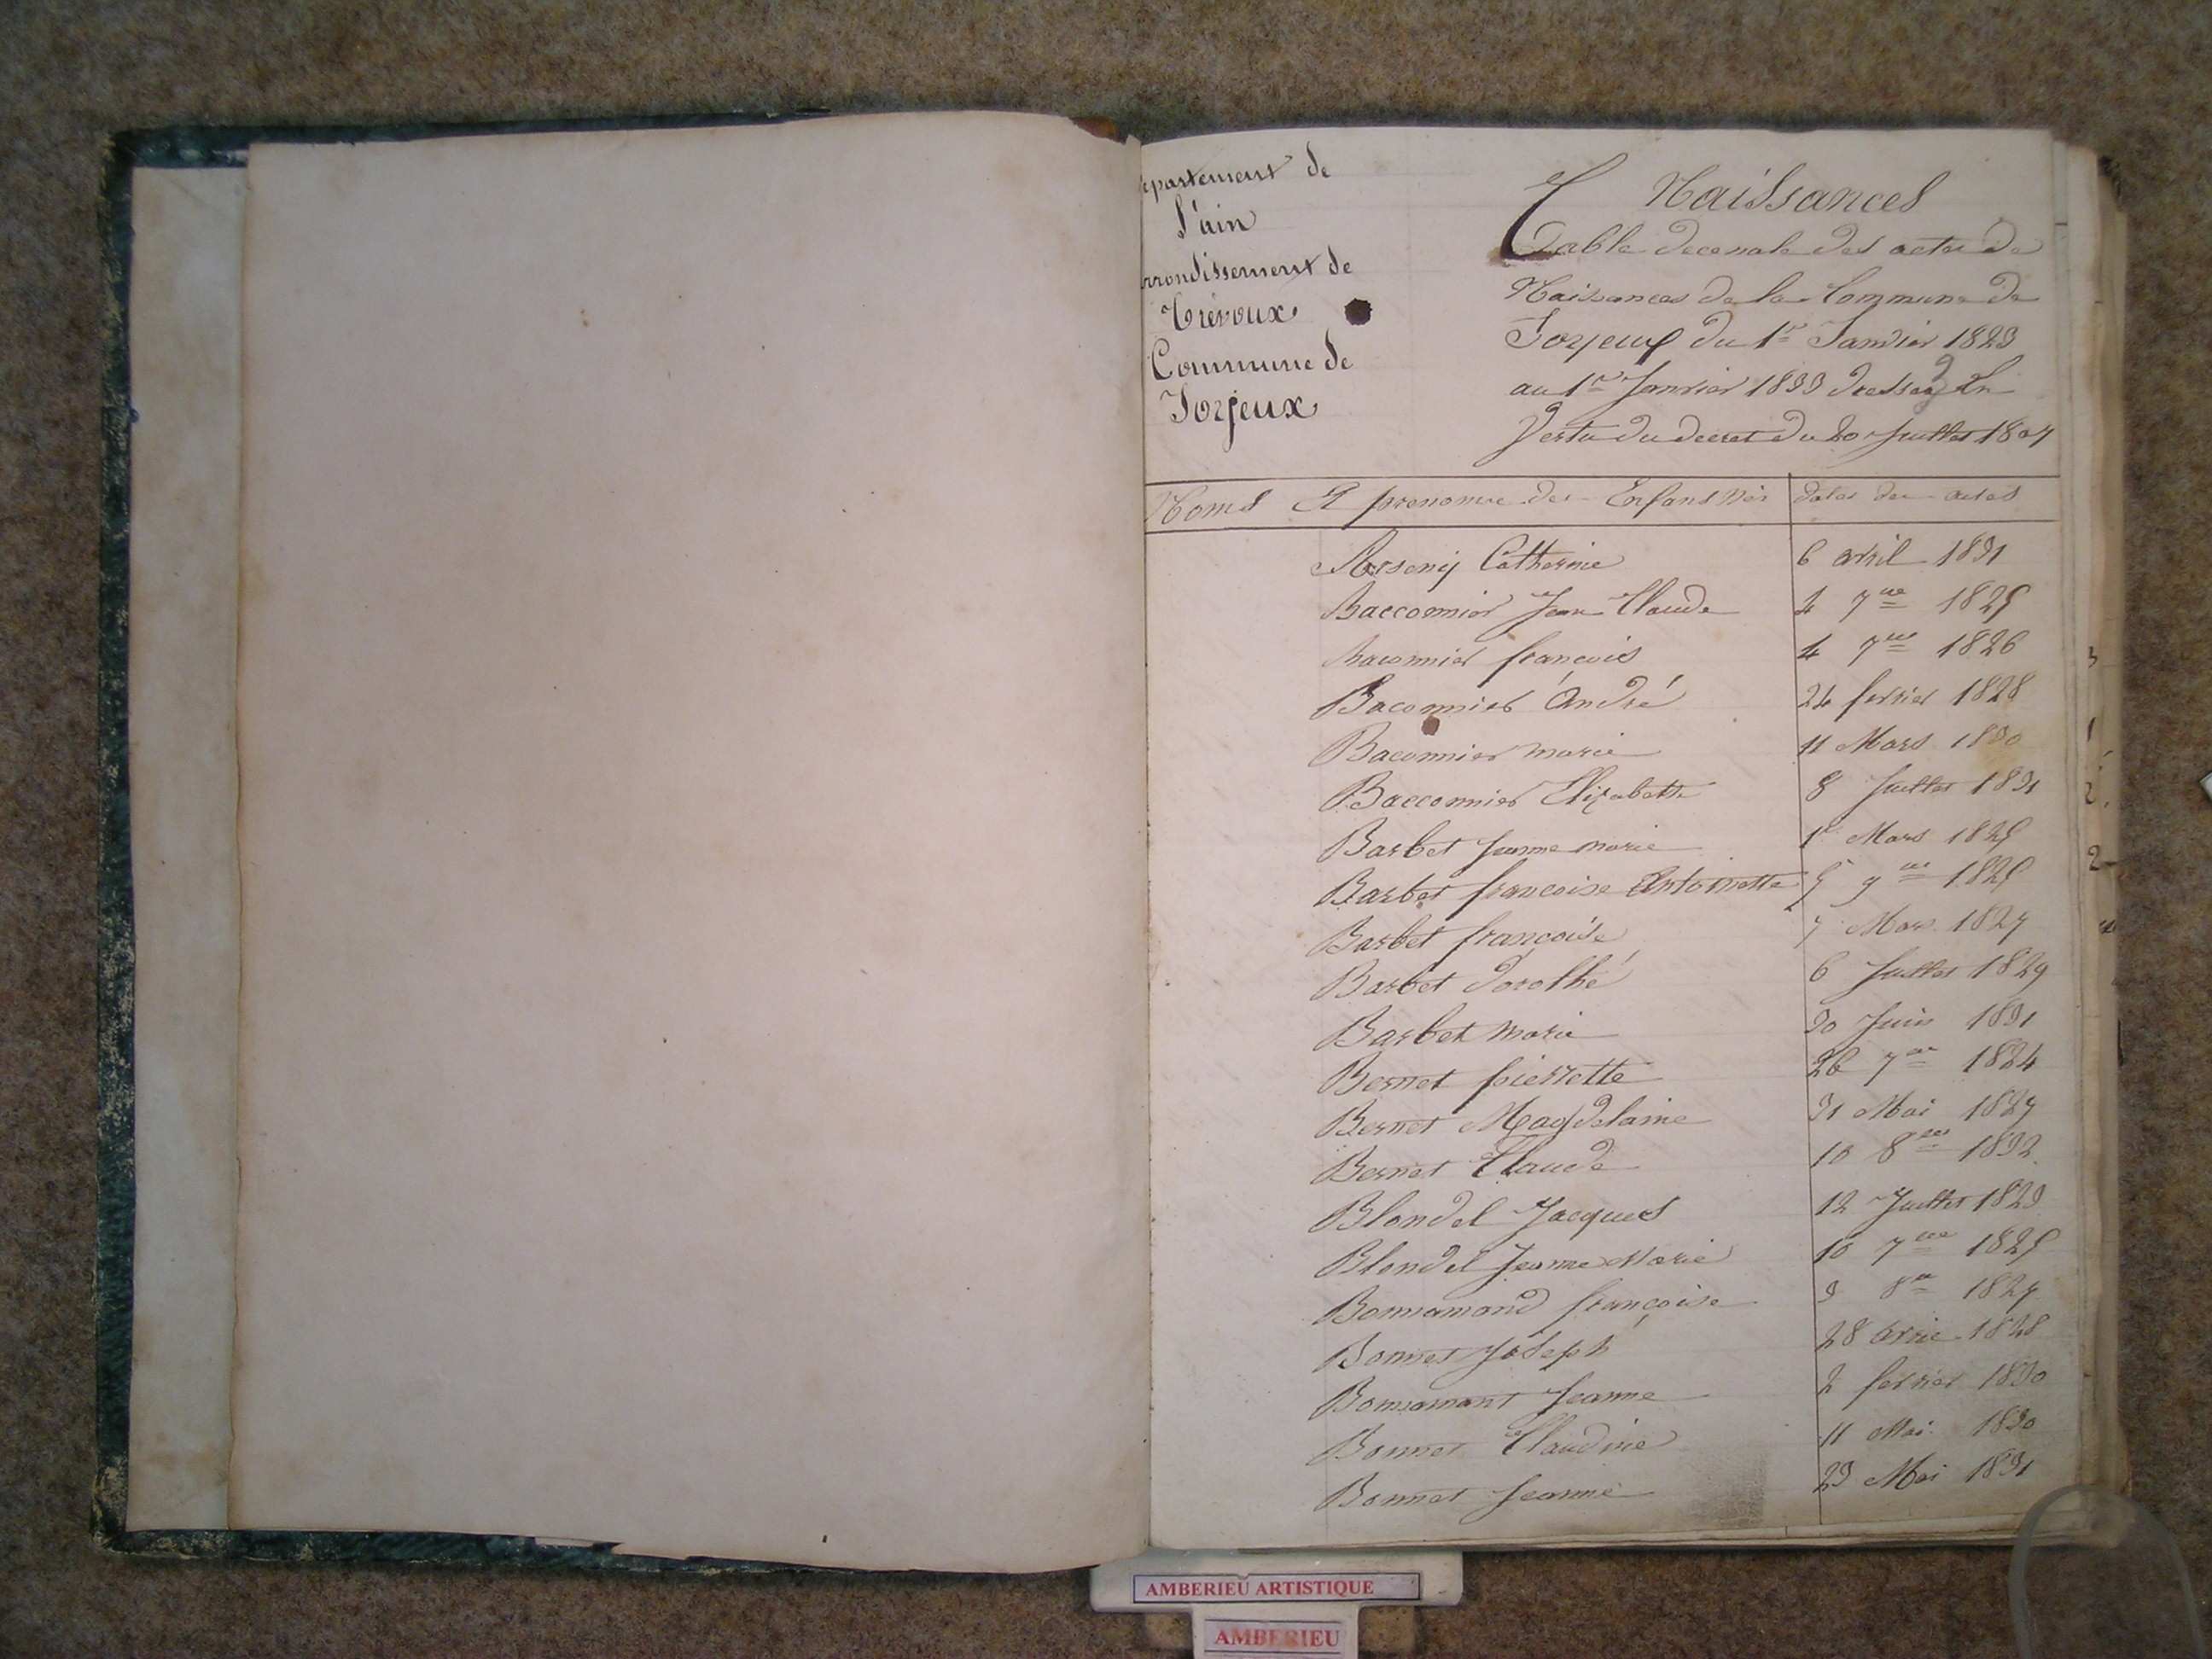 epartement de
l'ain
rrondissement de
Trévoux
Commune de
Jorjeux
Naissances
Table decenale des actes de
Naissances de la Commune de
Joyeux du 1er Janvier 1823
au 1er Janvier 1833 dressée En
Vertu du decret du 20 Juillet 1807
Noms Et prenoms des Enfans Nés dates des actes
Catherine 6 avril 1831
Bacconnier Jean Claude 4 7bre 1825
baconnier françois 4 7bre 1826
Baconnier André 24 fevrier 1828
Baconnier marie 11 Mars 1830
Bacconnier Elizabeth 8 Juillet 1831
Barbet Jeanne marie 1er Mars 1825
Barbet francoise Antoinette 5 9bre 1825
Barbet françoise 7 Mars 1827
Barbet dorothé 6 Juillet 1829
Barbet marie 30 Juin 1831
Bernet pierrette 26 7bre 1824
Bernet Magdelaine 31 Mai 1827
Bernet Claude 10 8bre 1832
Blondel Jacques 12 Juillet 1823
Blondel Jeanne Marie 10 7bre 1825
Bonnamand françoise 3 8bre 1827
Bonnet Joseph 28 avril 1828
Bonnamant Jeanne 2 fevrier 1830
Bonnet Claudine 11 Mai 1830
Bonnet Jeanne 23 Mai 1831
AMBERIEU ARTISTIQUE
AMBERIEU